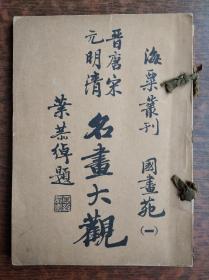 海粟叢刊 國畫苑（一）
晋唐宋
元明清
名畫大觀
葉恭綽題